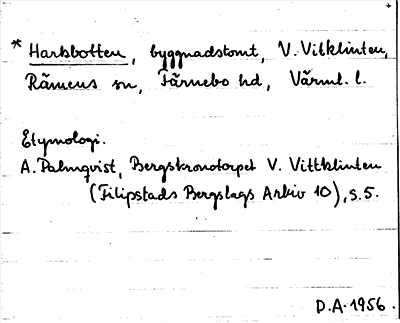 * Harkbotten, byggnadstomt, V. Vitklinten,
Rämens sn, Färnebo hd, Värml. l.
Etymologi.
A. Palmqvist, Bergskronotorpet V. Vittklinten
(Filipstads Bergslags Arkiv 10), s. 5.
D.A. 1956.